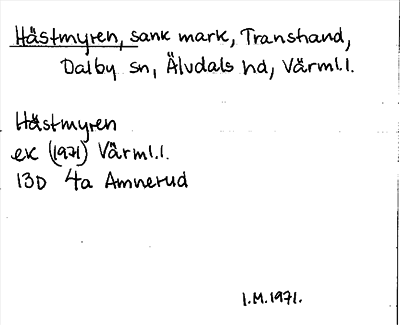 Hästmyren, sank mark, Transhand,
Dalby sn, Älvdals hd, Värml.l.
Hästmyren
ek (1971) Värml.l.
13D 4a Amnerud
I.M.1971.